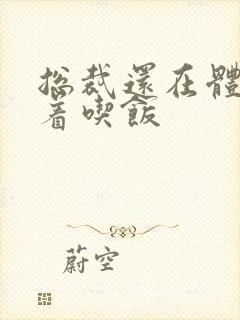 总裁還在體
着喫飯
蔚空